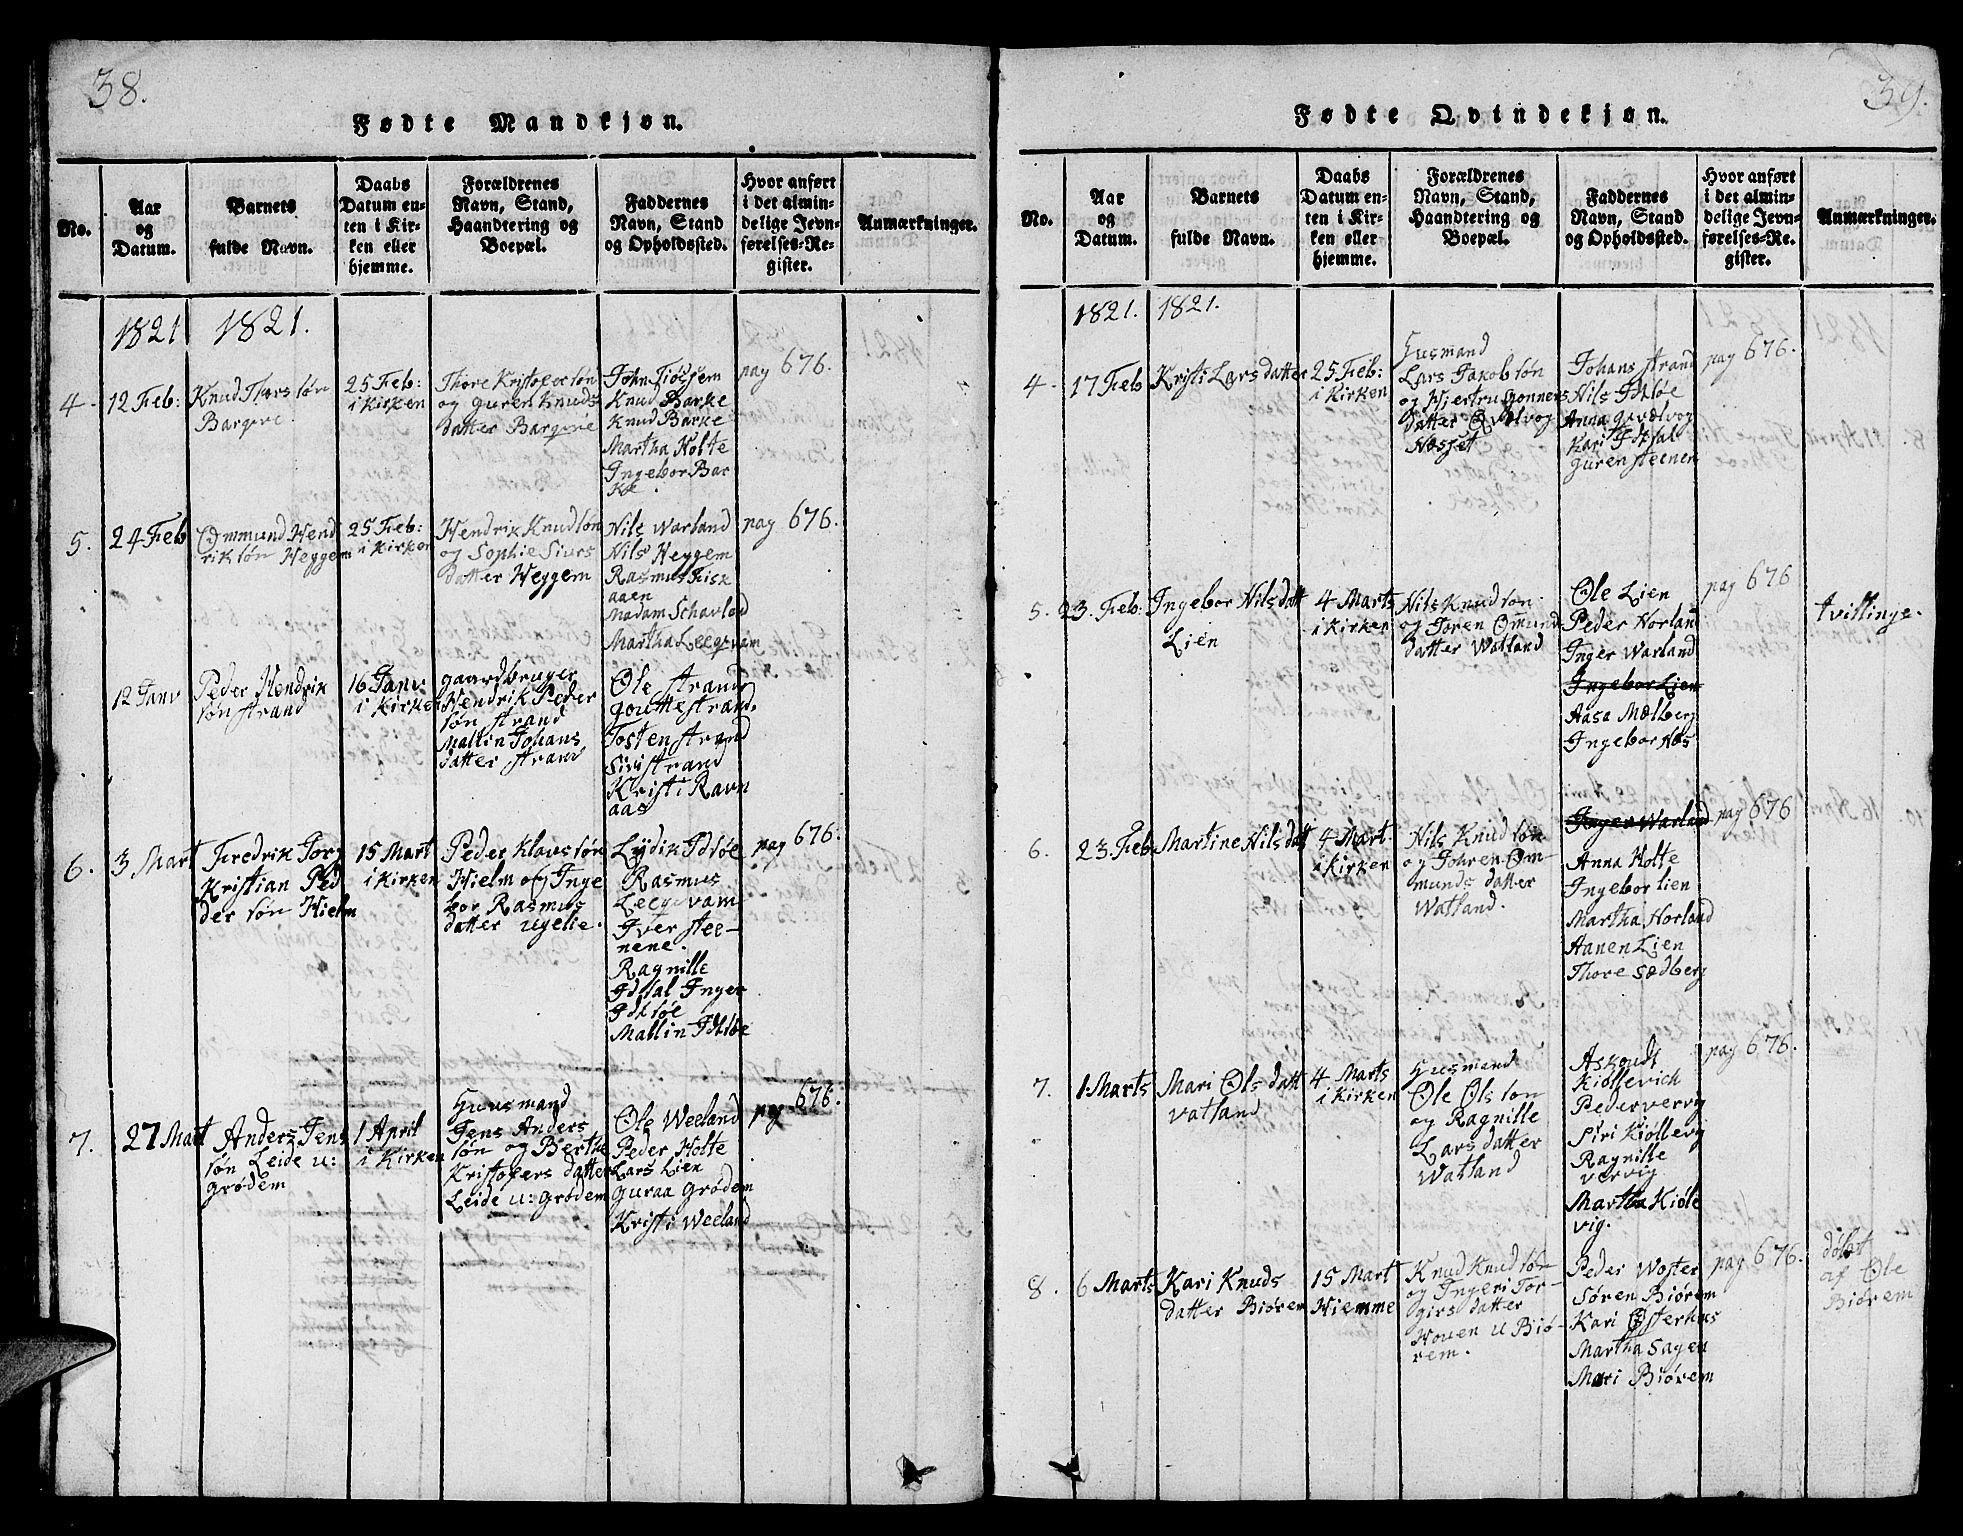 38.
Fødte Mandkjøn.
No.
Aar
og
Datum.
Barnets
fulde Navn.
Daabs
Datum en-
ten i Kir-
ken eller
hjemme.
Forældrenes
Navn, Stand,
Haandtering og
Boepæl.
Faddernes
Navn, Stand
og Opholdssted.
Hvor anført
i det almin-
delige Jevn-
førelses-Re-
gister.
Anmærkninger.
1821
1821.
4.
12 Feb:
Knud Thorssøn
Barqve
25 Feb:
i Kirken
Thore Kristofersøn
og guren Knuds
datter Barqve
John
Knud Barke
Knud Barke
Martha Holte
Ingebor Bar
ke.
pag 676.
5.
24 Feb
Ommund Hend
riksøn Heggem
25 Feb:
i Kirken
Hendrik Knudsøn
og Sophie Siurs
datter Heggem
Nils Warland
Nils Heggem
Rasmus Fisk
aaen
Madam Schavlad
Martha Leeqvam
pag 676.
12 Janv
Peder Hendrik
søn strand
16 Janv
i Kirken
gaardbruger
Hendrik Peder
søn strand
Mallin Johans
datter strand
Ole strand
goutte strand.
Tosten strand
Siri strand
Kristi Ravn
aas
6.
3 Mart
Fredrik Torg
Kristian Ped
der søn Hielm
15 Mart
i Kirken
Peder Klavssøn
Hielm og Inge
bor Rasmus
datter ugelie.
Lydik Idtsøe
Rasmus
Leeqvam
Iver stee-
nene.
Ragnille
Idsal Inger
Idtsøe
Mallin Idtsøe
pag 676.
7.
27 Mart
Anders Jens
søn Leide u:
grødem
1 April
i Kirken
Huusmand
Jens Anders
søn og Berthe
Kristofers datter
Leide u: grødem
Ole Weeland
Peder Holte
Lars Lien
Guraa grødem
Kristi Weeland
pag 676.
39.
Fødte Qvindekjøn.
No.
Aar
og
Datum.
Barnets
fulde Navn.
Daabs
Datum en-
ten i Kir-
ken eller
hjemme.
Forældrenes
Navn, Stand,
Haandtering og
Boepæl.
Faddernes
Navn, Stand
og Opholdssted.
Hvor anført
i det almin-
delige Jevn-
førelses-Re-
gister.
Anmærkninger.
1821.
1821.
4.
17 Feb
Kristi Lars datter
25 Feb:
i Kirken
Husmand
Lars Jakobsøn
og Hjertru gonners
datter Qvalvog
Næsset
Johans strand
Nils Idtsøe
Anna qvalvog
Kari Idsal
guren steenen
pag 676.
5.
23. Feb:
Ingebor Nilsdatt
Lien
4 Marts
i Kirken
Nils Knudsøn
og Joren Omund
datter Watland
Ole Lien
Peder Horland
Inger Warland
Ingebor Lien
Aasa Mælberg
Ingebor Næs
pag 676
tvillinge.
6.
23. Feb
Martine Nilsdatt
4 Mart
i Kirken
Nils Knudsøn
og Johren Om
munds datter
Watland.
Inger Warland
Anna Holte
Ingebor Lien
Martha Horland
Aanen Lien
Thore Sædberg
pag 676
7.
1 Marts
Mari Ols datt
vatland
4 Marts
i Kirken
Husmand
Ole Olssøn
og Ragnille
Lars datter
Watland
Askoudt
Kiøllevich
Peder vervig
Siri Kiøllevig
Ragnille
vervig
Martha Kiøle
vig.
pag 676.
8.
6 Marts
Kari Knuds
datter Biørem
15 Mart
Hiemme
Knud Knudsøn
og Ingeri Tor-
girs datter
Houen u Biø-
rem.
Peder Woster
Søren Biørem
Kari Østerhus
Martha Sagen
Mari Biørem
pag 676.
døbt
af Ole
Biørem